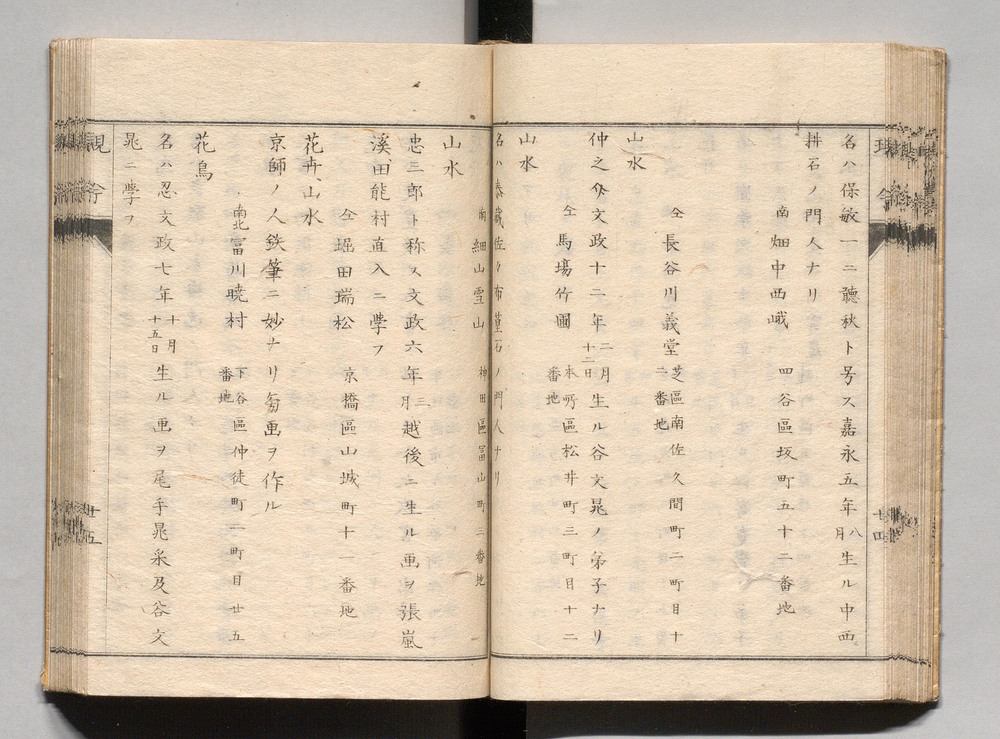 名ハ保敏一ニ聽秋ト号ス嘉永五年八月生ル中西
耕石ノ門人ナリ
南 畑中西峨 四谷區坂町五十二番地
仝 長谷川義堂 芝區南佐久間町二町目十二番地
山水
仲之久文政十二年二月十二日生ル谷文晁ノ弟子ナリ
仝 馬場竹圃 本所區松井町三町目十二番地
山水
名ハ泰藏佐々布菫石ノ門人ナリ
南 細山雪山 神田區冨山町二番地
山水
忠三郎ト称ス文政六年三月越後ニ生ル画ヲ張嵐
溪田能村直入ニ學フ
仝 堀田瑞松 京橋區山城町十一番地
花卉山水
京師ノ人鉄筆ニ妙ナリ匆画ヲ作ル
南北 富川暁村 下谷區仲徒町一町目廿五番地
花鳥
名ハ忍文政七年十月十五日生ル画ヲ尾手晁采及谷文
晁ニ學フ
現今
十四
現今
十五